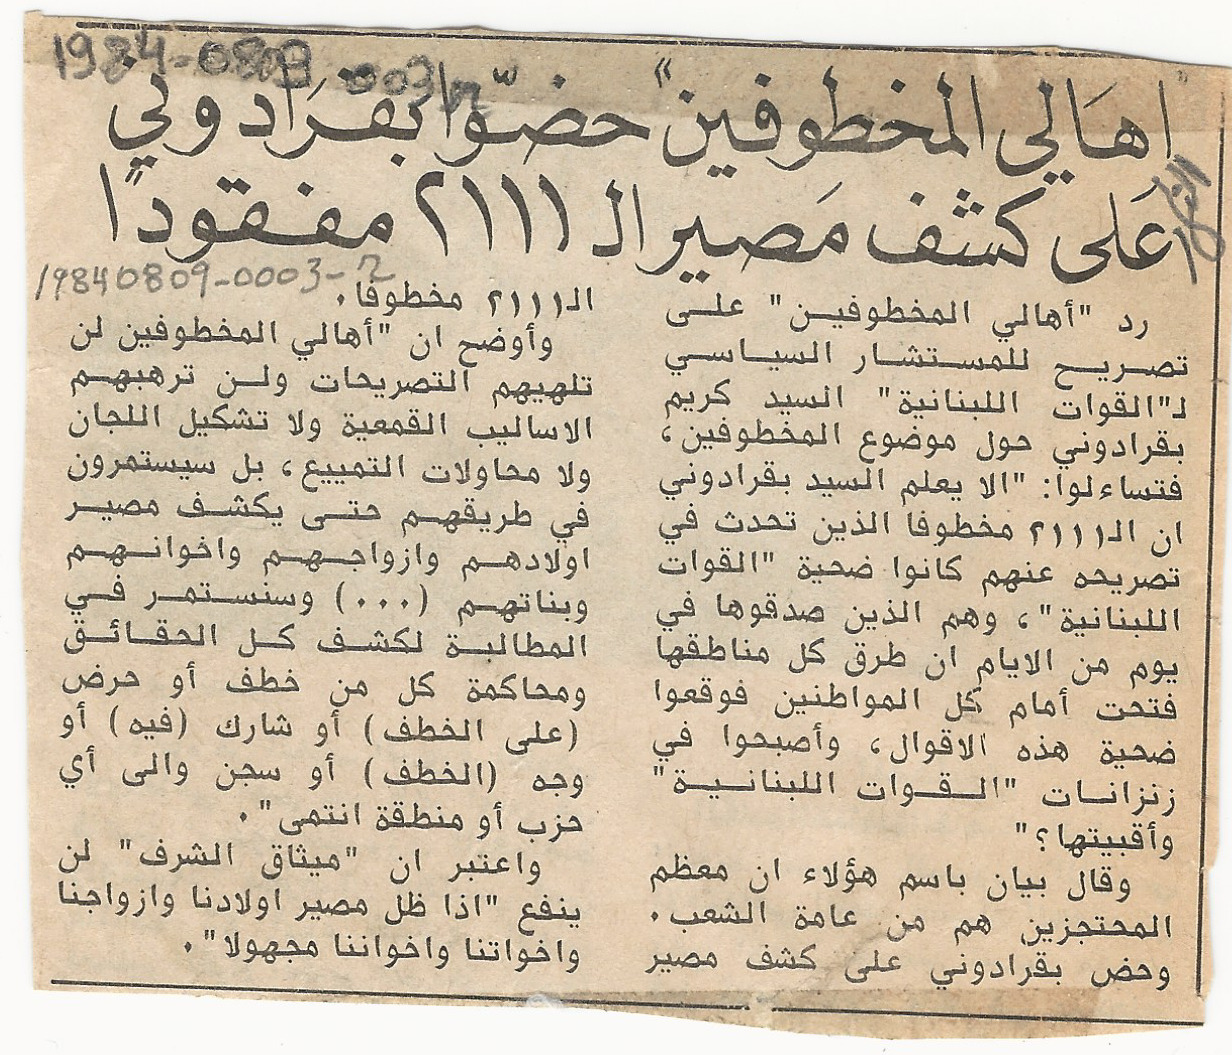 1984-0809-003
"اهالي المخطوفين" حضّوا بقرادوني
على كشف مصير الـ ٢١١١ مفقوداً
النهار
19840809-0003-2
رد "أهالي المخطوفين" على
تصريح للمستشار السياسي
لـ"القوات اللبنانية" السيد كريم
بقرادوني حول موضوع المخطوفين،
فتساءلوا: "الا يعلم السيد بقرادوني
ان الـ٢١١١ مخطوفا الذين تحدث في
تصريحه عنهم كانوا ضحية "القوات
اللبنانية"، وهم الذين صدقوها في
يوم من الايام ان طرق كل مناطقها
فتحت أمام كل المواطنين فوقعوا
ضحية هذه الاقوال، وأصبحوا في
زنزانات "القوات اللبنانية"
وأقبيتها؟"
وقال بيان باسم هؤلاء ان معظم
المحتجزين هم من عامة الشعب.
وحض بقرادوني على كشف مصير
الـ٢١١١ مخطوفا.
وأوضح ان "أهالي المخطوفين لن
تلهيهم التصريحات ولن ترهبهم
الاساليب القمعية ولا تشكيل اللجان
ولا محاولات التمييع، بل سيستمرون
في طريقهم حتى يكشف مصير
اولادهم وازواجهم واخوانهم
وبناتهم (...) وسنستمر في
المطالبة لكشف كل الحقائق
ومحاكمة كل من خطف أو حرض
(على الخطف) أو شارك (فيه) أو
وجه (الخطف) أو سجن والى أي
حزب أو منطقة انتمى".
واعتبر ان "ميثاق الشرف" لن
ينفع "اذا ظل مصير اولادنا وازواجنا
واخواتنا واخواننا مجهولا".